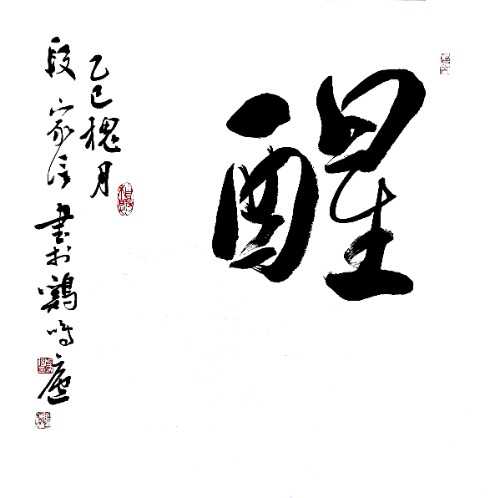 醒
乙巳槐月
段家信書於鷄鳴廬